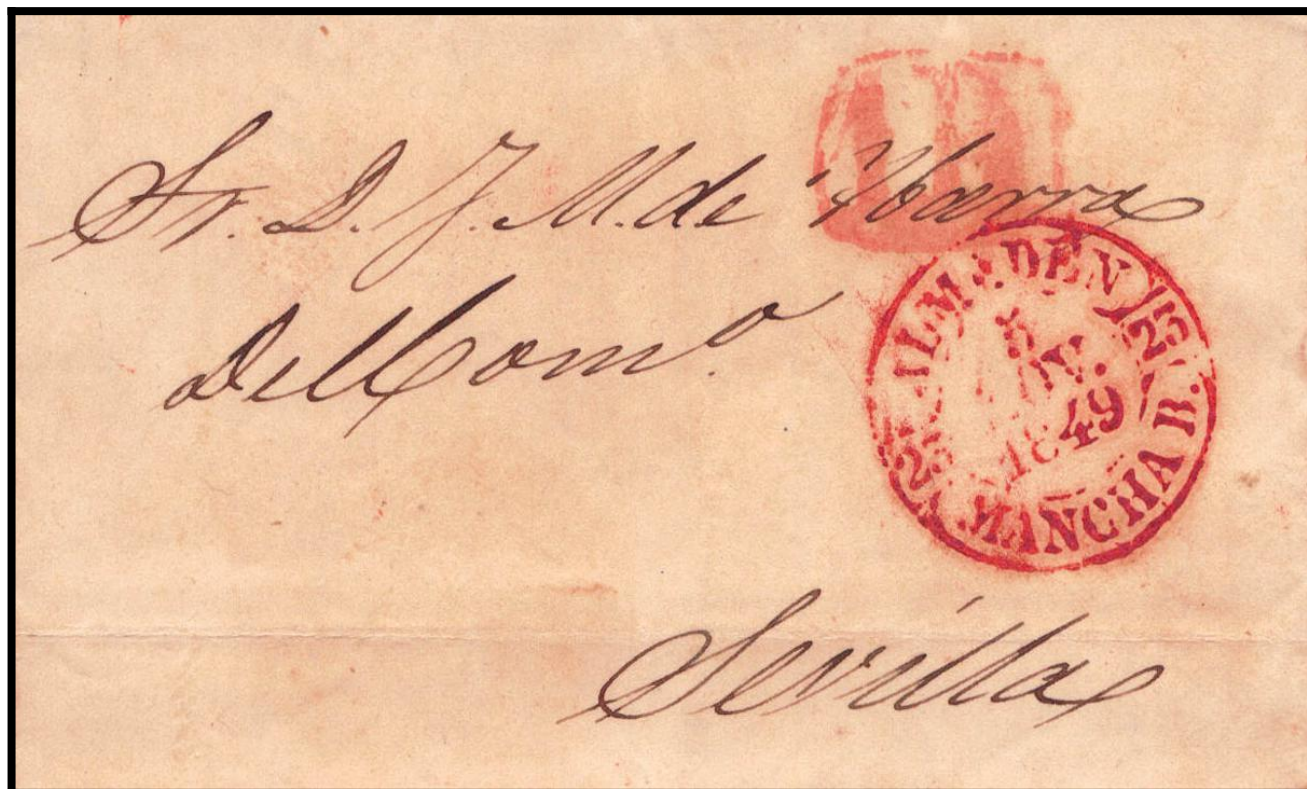 Sr. D. J. M. de Ybarra
Del Com.º
ALMADEN
25 25
5
1849
MANCHA B.
Sevilla